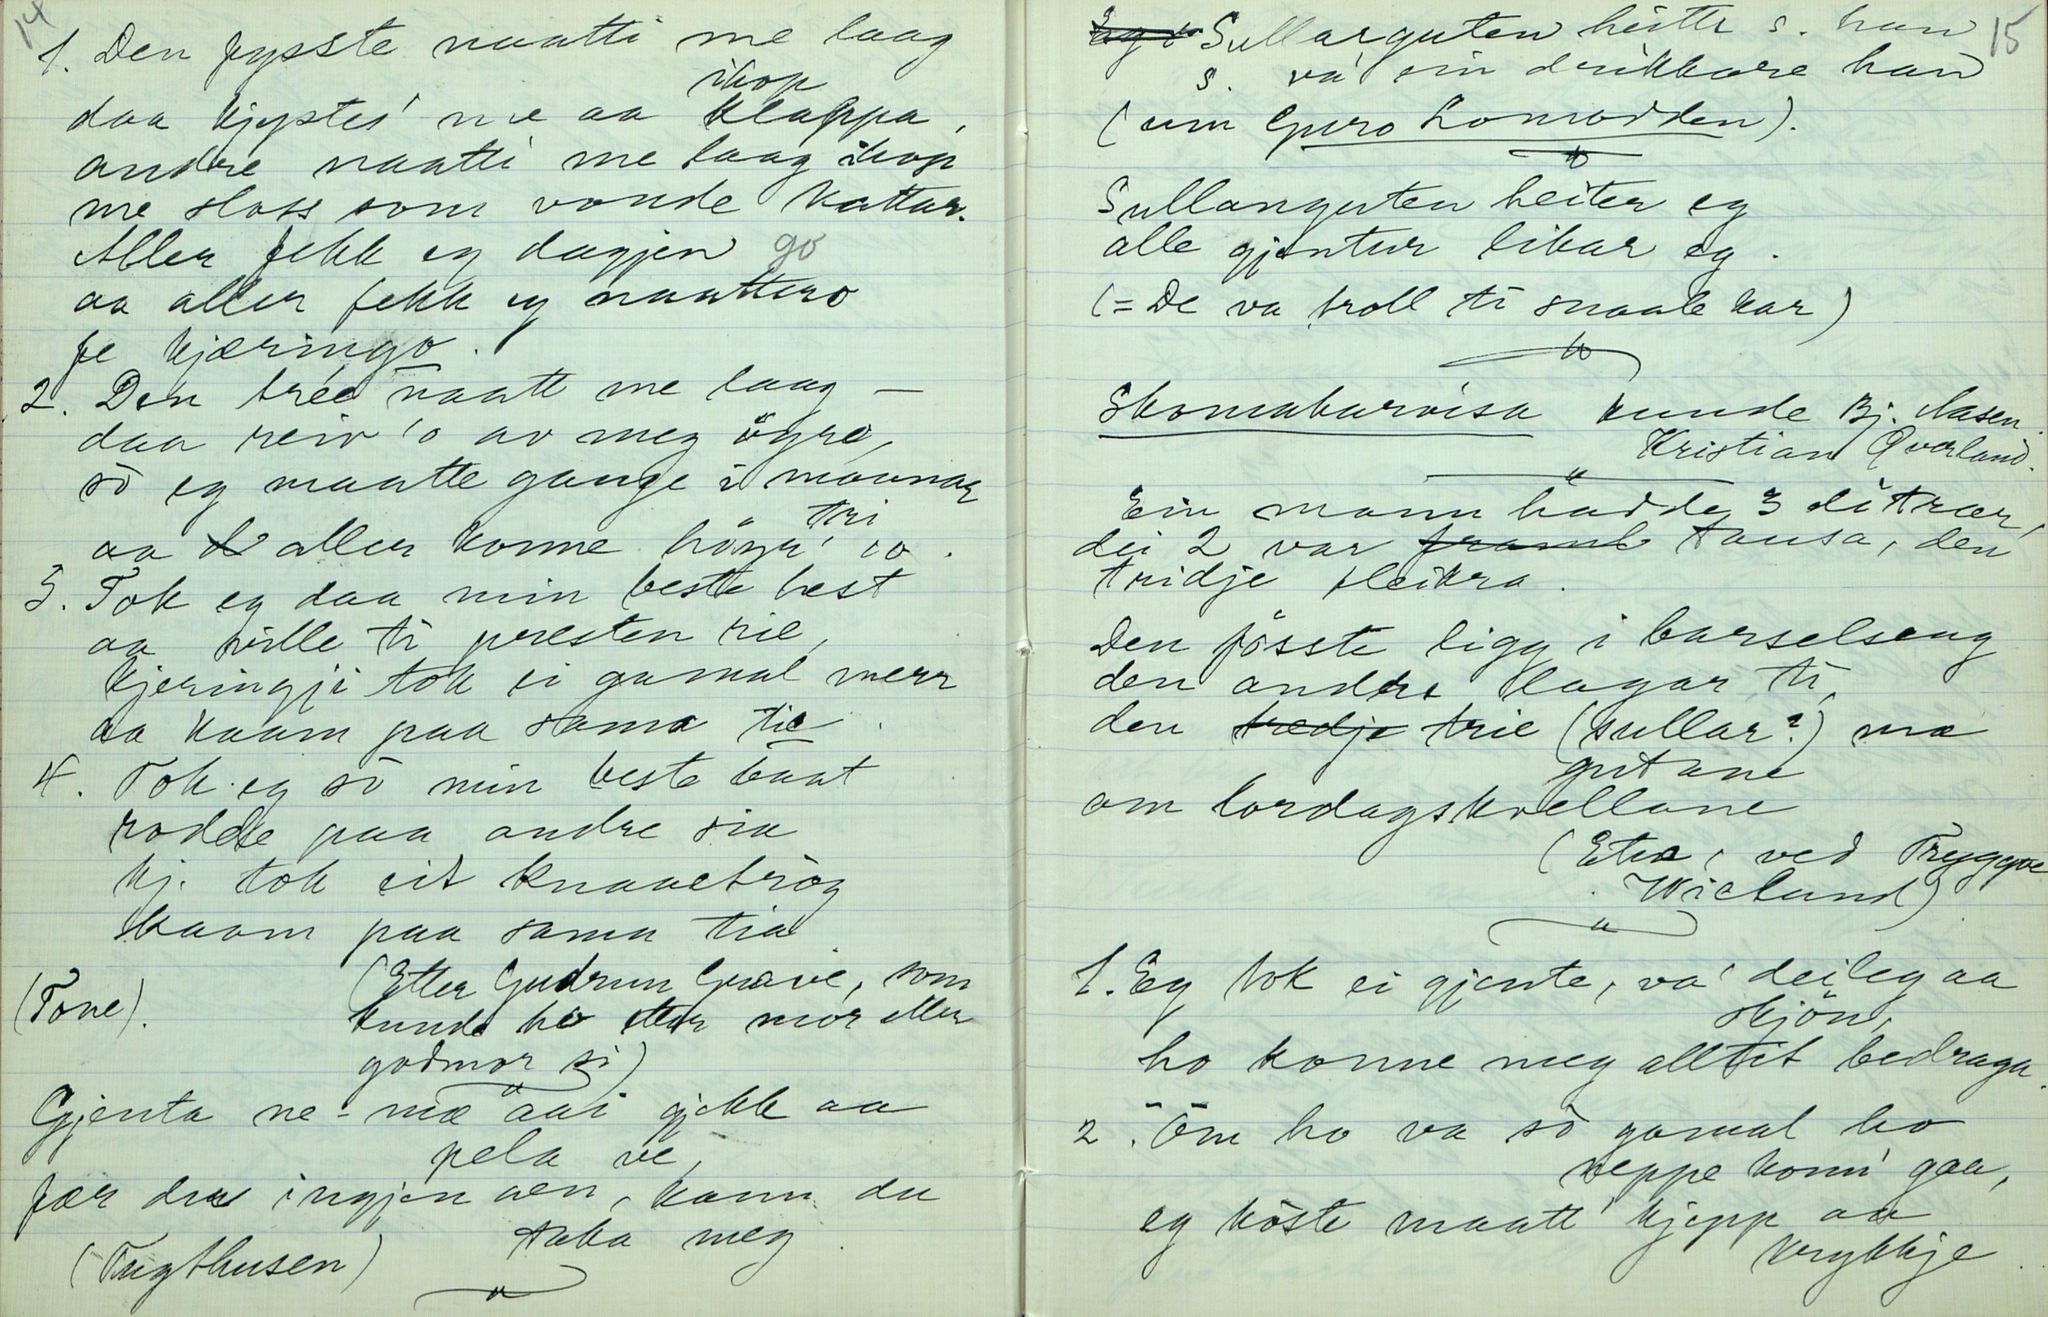 14
1. Den fysste naatti me laag
ihop
daa kjystes' me aa klappa,
andre naatti me laag ihop
me sloss som vonde kattar.
Aller fekk eg dagjen go
aa aller fekk eg naattero
fe kjæringo.
2. Den tree naatt me laag –
daa reiv 'o av meg öyro,
sö eg maatte gange i mournar
aa aller konne höyr' tri
io.
3. Tok eg daa min beste hest
aa ville ti presten rie,
kjeringji tok ei gamal merr
aa kaam paa sama tie.
4. Tok eg sö min beste baat
rodde paa andre sia
kj. tok eit knaaetrög
kaam paa sama tia.
(Tone). (Etter Gudrun Græve, som
kunde ho etter mor eller
godmor si)
Gjenta ne-mæ aai gjekk aa
pela ve,
fær du ingjen aen, kann du
taka meg.
(Tugthusen)
15
Sullarguten heitte s. han
s. va' ein drikkare han
(um Guro Lomodden).
Sullanguten heiter eg
alle gjentur likar eg.
(= De va troll ti snaale kar)
Skomakarvisa kunde Bj. Aasen.
Kristian Qværland.
Ein mann hadde 3 dötrar,
dei 2 var tausa, den
tridje fleikra.
Den fösste ligg i barselseng
den andre lagar ti,
den tredje trie (sullar?) mæ
gutane
om lordagskvellane
(Etne, ved Tryggve
Wielund)
1. Eg tok ei gjente, va' deileg aa
skjön,
ho konne meg alltit bedraga.
2. Öm ho va sö gamal ho
neppe konn' gaa,
eg köste maatt' kjepp aa
krykkje.